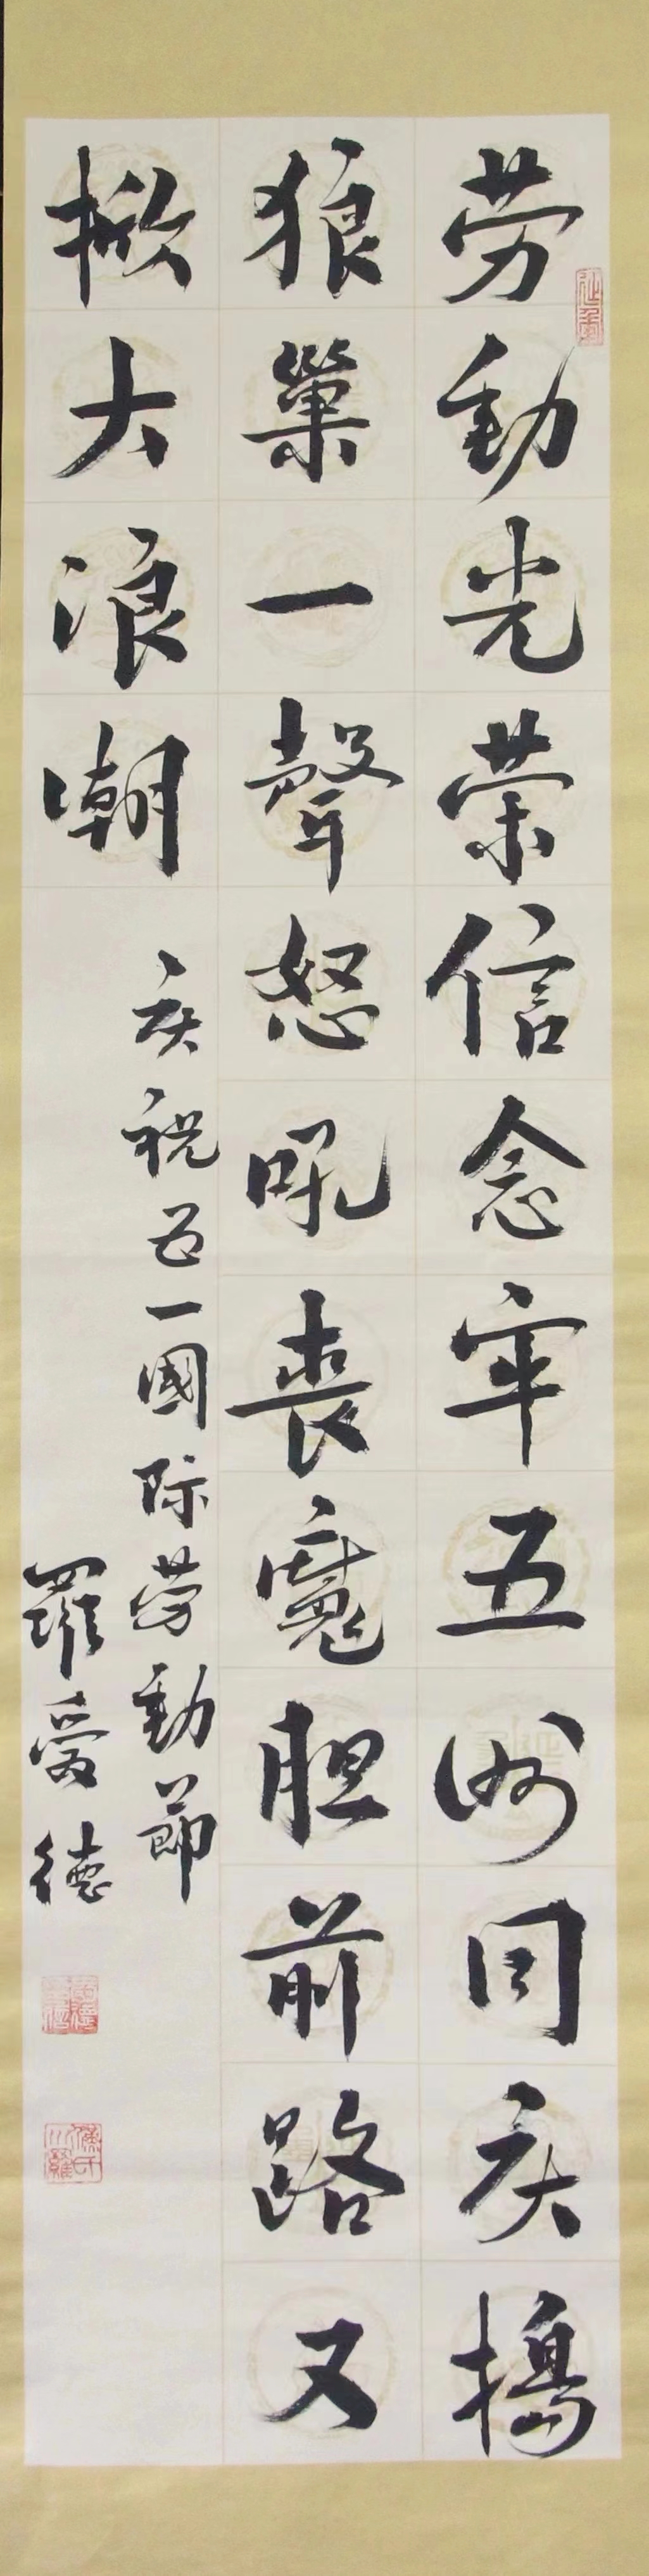 劳動光荣信念牢五洲同庆搗
狼巢一聲怒吼丧魔胆前路又
掀大浪潮
庆祝五一國际劳動節
羅爱德